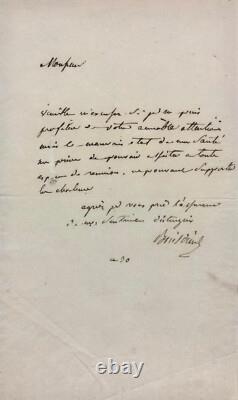 Monsieur
veuillez m'excuser si je ne puis
profiter de votre aimable attention
mais le mauvais état de ma santé
me prive de pouvoir assister a toute
espece de reunion, ne pouvant supporter
la chaleur
agréez je vous prie l'assurance
de mes sentimens distingués
ce 30
www.1st-art-gallery.com